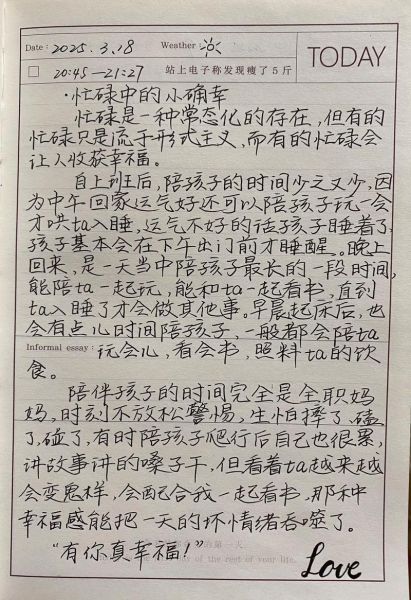 Date: 2025.3.18 Weather
20:45—21:27 站上电子称发现瘦了5斤
TODAY
·忙碌中的小确幸
忙碌是一种常态化的存在,但有的
忙碌只是流于形式主义,而有的忙碌会
让人收获幸福。
自上班后,陪孩子的时间少之又少,因
为中午回家运气好还可以陪孩子玩一会
才哄ta入睡,运气不好的话孩子睡着了,
孩子基本会在下午出门前才睡醒。晚上
回来,是一天当中陪孩子最长的一段时间,
能陪ta一起玩,能和ta一起看书,直到
ta入睡了才会做其他事。早晨起床后,也
会有点儿时间陪孩子,一般都会陪ta
Informal essay: 玩会儿,看会书,照料ta的饮
食。
陪伴孩子的时间完全是全职妈
妈,时刻不放松警惕,生怕摔了、磕
了,碰了,有时陪孩子爬行后自己也很累,
讲故事讲的嗓子干,但看着ta越来越
会变愚样,会配合我一起看书,那种
幸福感能把一天的坏情绪吞噬了。
"有你真幸福!"
的第一天
of the rest of your life.
Love